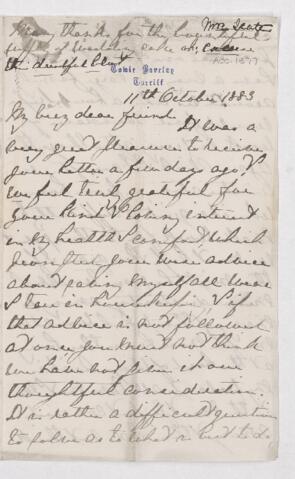 Many thanks for the
Mrs
of wedding cake
ACC. 1377
the dreadful blot
Towie Barclay
Turriff
11th October 1883
My very dear friend
It was a
very great pleasure to receive
your letter a few days ago &
we feel truly grateful for
your kind & loving interest
in my health & comfort, which
prompted your wise advice
about
& if
that advice is not followed
at once you must not think
we have not given it our
thoughtful consideration.
It is rather a difficult question
to solve as to what is best to do